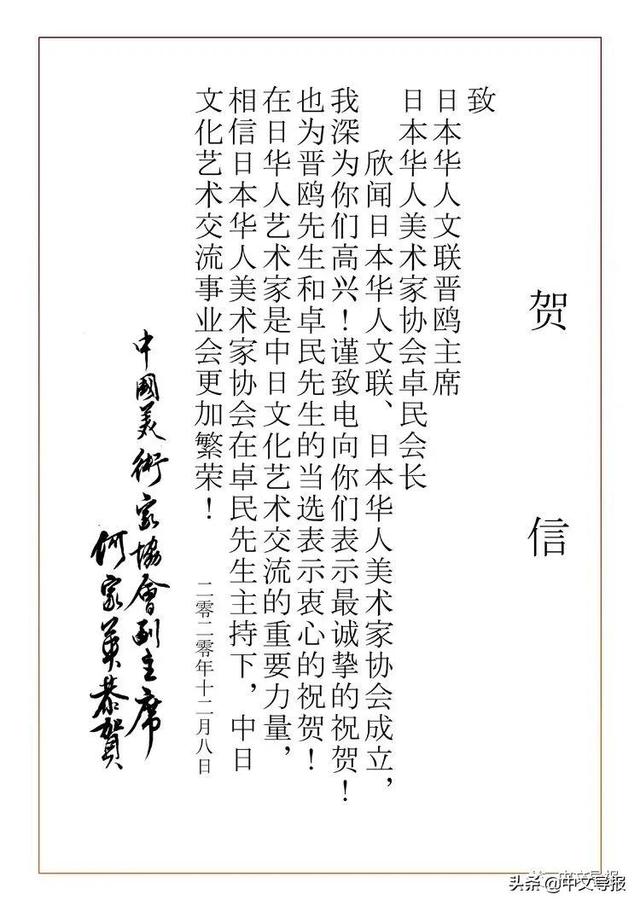 贺信
致
日本华人文联晋鸥主席
日本华人美术家协会卓民会长
欣闻日本华人文联、日本华人美术家协会成立，
我深为你们高兴！谨致电向你们表示最诚挚的祝贺！
也为晋鸥先生和卓民先生的当选表示衷心的祝贺！
在日华人艺术家是中日文化艺术交流的重要力量，
相信日本华人美术家协会在卓民先生主持下，中日
文化艺术交流事业会更加繁荣！
二零二零年十二月八日
中國美術家協會副主席
何家英恭賀
中文导报
头条@中文导报